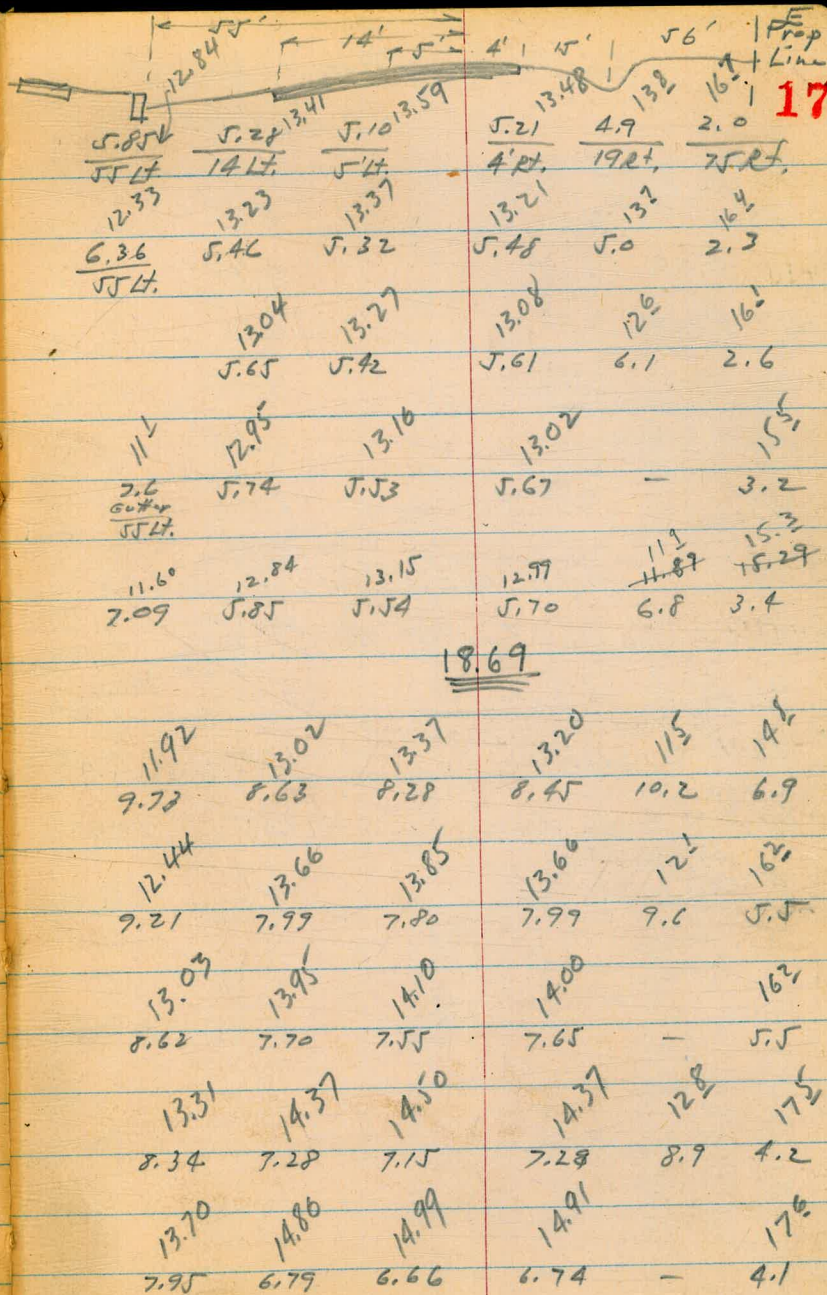 55' E
14' 5' 4' 15' 56' Prop
Line
17
12.84 13.41 13.59 13.48 13.8 16.7
5.85 5.28 5.10 5.21 4.9 2.0
55 Lt 14 Lt. 5' Lt. 4' Rt. 19 Rt. 75 Rt.
12.33 13.23 13.37 13.21 13.7 16.4
6.36 5.46 5.32 5.48 5.0 2.3
55 Lt.
13.04 13.27 13.08 12.6 16.1
5.65 5.42 5.61 6.1 2.6
11.1 12.95 13.16 13.02 15.5
7.6 5.74 5.53 5.67 - 3.2
Gutter
55 Lt.
11.9 15.3
11.60 12.84 13.15 12.99 11.89 15.29
7.09 5.85 5.54 5.70 6.8 3.4
18.69
11.92 13.02 13.37 13.20 11.5 14.8
9.73 8.63 8.28 8.45 10.2 6.9
12.44 13.66 13.85 13.66 12.1 16.2
9.21 7.99 7.80 7.99 9.6 5.5
13.03 13.95 14.10 14.00 16.2
8.62 7.70 7.55 7.65 - 5.5
13.31 14.37 14.50 14.37 12.8 17.5
8.34 7.28 7.15 7.28 8.9 4.2
13.70 14.86 14.99 14.91 17.6
7.95 6.79 6.66 6.74 - 4.1